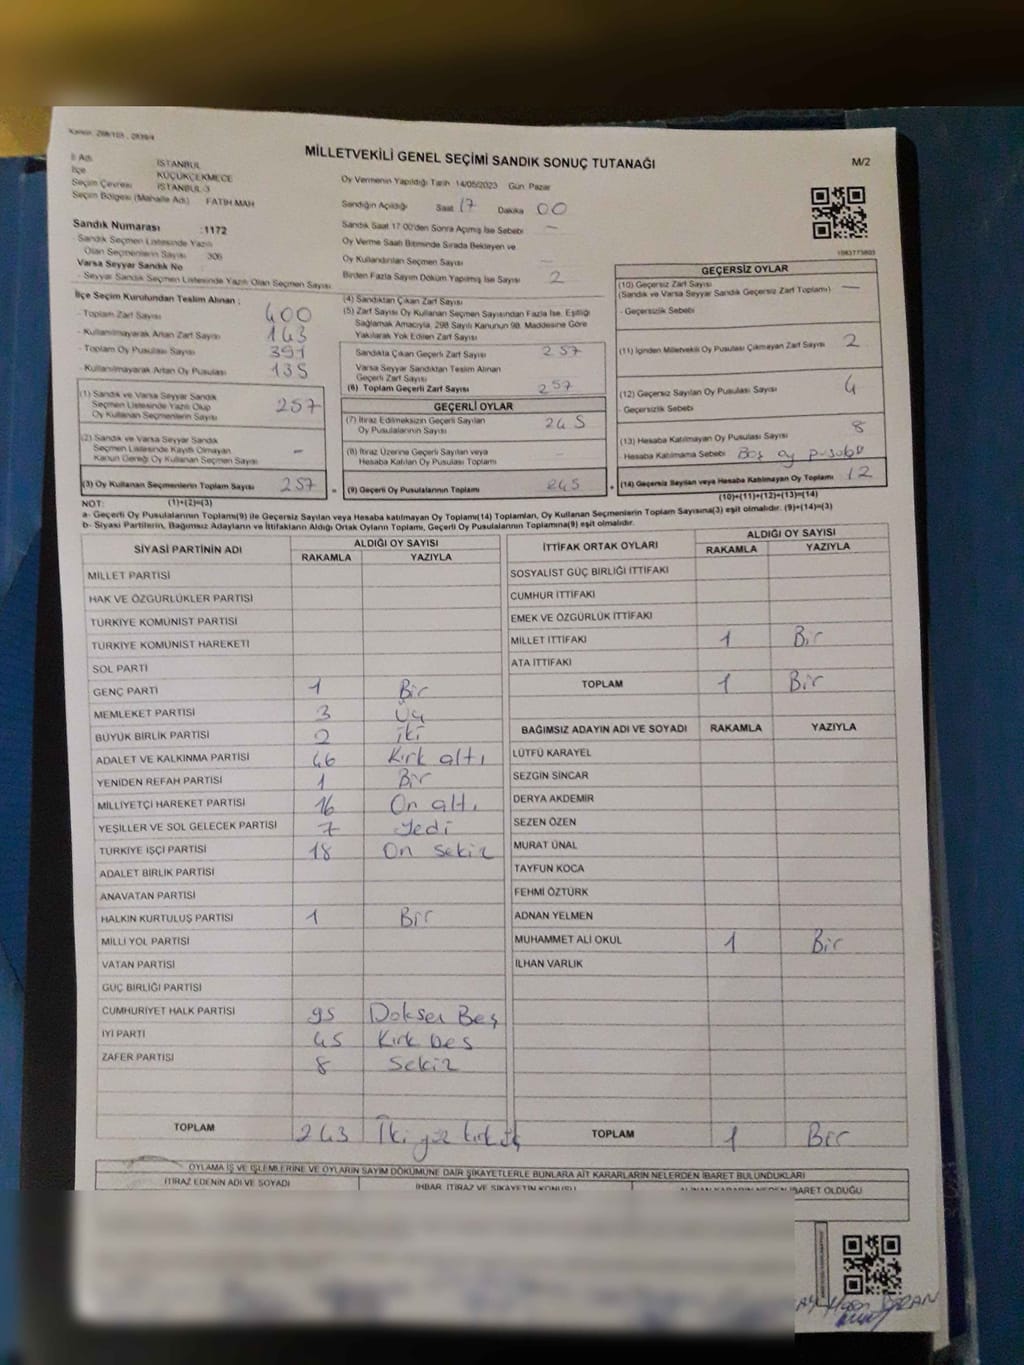 MİLLETVEKİLİ GENEL SEÇİMİ SANDIK SONUÇ TUTANAĞI
M/2
İl Adı İSTANBUL
İlçe KÜÇÜKÇEKMECE
Seçim Çevresi İSTANBUL-3
Seçim Bölgesi (Mahalle Adı) FATİH MAH
Oy Vermenin Yapıldığı Tarih 14/05/2023 Gün Pazar
Sandığın Açıldığı Saat 17 Dakika 00
Sandık Numarası :1172
Sandık Saat 17:00'den Sonra Açılmış İse Sebebi —
- Sandık Seçmen Listesinde Yazılı
Olan Seçmenlerin Sayısı 306
Oy Verme Saati Bitiminde Sırada Bekleyen ve
Oy Kullandırılan Seçmen Sayısı —
Varsa Seyyar Sandık No :
- Seyyar Sandık Seçmen Listesinde Yazılı Olan Seçmen Sayısı
Birden Fazla Sayım Döküm Yapılmış İse Sayısı 2
İlçe Seçim Kurulundan Teslim Alınan :
- Toplam Zarf Sayısı 400
- Kullanılmayarak Artan Zarf Sayısı 143
- Toplam Oy Pusulası Sayısı 391
- Kullanılmayarak Artan Oy Pusulası 135
(1) Sandık ve Varsa Seyyar Sandık
Seçmen Listesinde Yazılı Olup
Oy Kullanan Seçmenlerin Sayısı 257
(2) Sandık ve Varsa Seyyar Sandık
Seçmen Listesinde Kayıtlı Olmayan
Kanun Gereği Oy Kullanan Seçmen Sayısı -
(3) Oy Kullanan Seçmenlerin Toplam Sayısı 257
(1)+(2)=(3)
(4) Sandıktan Çıkan Zarf Sayısı
(5) Zarf Sayısı Oy Kullanan Seçmen Sayısından Fazla İse, Eşitliği
Sağlamak Amacıyla, 298 Sayılı Kanunun 98. Maddesine Göre
Yakılarak Yok Edilen Zarf Sayısı
Sandıkta Çıkan Geçerli Zarf Sayısı 257
Varsa Seyyar Sandıktan Teslim Alınan
Geçerli Zarf Sayısı
(6) Toplam Geçerli Zarf Sayısı 257
GEÇERLİ OYLAR
(7) İtiraz Edilmeksizin Geçerli Sayılan
Oy Pusulalarının Sayısı 245
(8) İtiraz Üzerine Geçerli Sayılan veya
Hesaba Katılan Oy Pusulaları Toplamı —
(9) Geçerli Oy Pusulalarının Toplamı 245
GEÇERSİZ OYLAR
(10) Geçersiz Zarf Sayısı
(Sandık ve Varsa Seyyar Sandık Geçersiz Zarf Toplamı) —
- Geçersizlik Sebebi
(11) İçinden Milletvekili Oy Pusulası Çıkmayan Zarf Sayısı 2
(12) Geçersiz Sayılan Oy Pusulası Sayısı 4
- Geçersizlik Sebebi
(13) Hesaba Katılmayan Oy Pusulası Sayısı 8
Hesaba Katılmama Sebebi Boş oy pusula
(14) Geçersiz Sayılan veya Hesaba Katılmayan Oy Toplamı 12
(10)+(11)+(12)+(13)=(14)
NOT:
a- Geçerli Oy Pusulalarının Toplamı(9) ile Geçersiz Sayılan veya Hesaba katılmayan Oy Toplamı(14) Toplamları, Oy Kullanan Seçmenlerin Toplam Sayısına(3) eşit olmalıdır. (9)+(14)=(3)
b- Siyasi Partilerin, Bağımsız Adayların ve İttifakların Aldığı Ortak Oyların Toplamı, Geçerli Oy Pusulalarının Toplamına(9) eşit olmalıdır.
SİYASİ PARTİNİN ADI ALDIĞI OY SAYISI
RAKAMLA YAZIYLA
MİLLET PARTİSİ
HAK VE ÖZGÜRLÜKLER PARTİSİ
TÜRKİYE KOMÜNİST PARTİSİ
TÜRKİYE KOMÜNİST HAREKETİ
SOL PARTİ
GENÇ PARTİ 1 Bir
MEMLEKET PARTİSİ 3 Üç
BÜYÜK BİRLİK PARTİSİ 2 iki
ADALET VE KALKINMA PARTİSİ 46 Kırk altı
YENİDEN REFAH PARTİSİ 1 Bir
MİLLİYETÇİ HAREKET PARTİSİ 16 On altı
YEŞİLLER VE SOL GELECEK PARTİSİ 7 Yedi
TÜRKİYE İŞÇİ PARTİSİ 18 On sekiz
ADALET BİRLİK PARTİSİ
ANAVATAN PARTİSİ
HALKIN KURTULUŞ PARTİSİ 1 Bir
MİLLİ YOL PARTİSİ
VATAN PARTİSİ
GÜÇ BİRLİĞİ PARTİSİ
CUMHURİYET HALK PARTİSİ 95 Doksen Beş
İYİ PARTİ 45 Kırk beş
ZAFER PARTİSİ 8 Sekiz
TOPLAM 243 İki yüz kırk üç
İTTİFAK ORTAK OYLARI ALDIĞI OY SAYISI
RAKAMLA YAZIYLA
SOSYALİST GÜÇ BİRLİĞİ İTTİFAKI
CUMHUR İTTİFAKI
EMEK VE ÖZGÜRLÜK İTTİFAKI
MİLLET İTTİFAKI 1 Bir
ATA İTTİFAKI
TOPLAM 1 Bir
BAĞIMSIZ ADAYIN ADI VE SOYADI RAKAMLA YAZIYLA
LÜTFÜ KARAYEL
SEZGİN SİNCAR
DERYA AKDEMİR
SEZEN ÖZEN
MURAT ÜNAL
TAYFUN KOCA
FEHMİ ÖZTÜRK
ADNAN YELMEN
MUHAMMET ALİ OKUL 1 Bir
İLHAN VARLIK
TOPLAM 1 Bir
OYLAMA İŞ VE İŞLEMLERİNE VE OYLARIN SAYIM DÖKÜMÜNE DAİR ŞİKAYETLERLE BUNLARA AİT KARARLARIN NELERDEN İBARET BULUNDUKLARI
İTİRAZ EDENİN ADI VE SOYADI İHBAR, İTİRAZ VE ŞİKAYETİN KONUSU